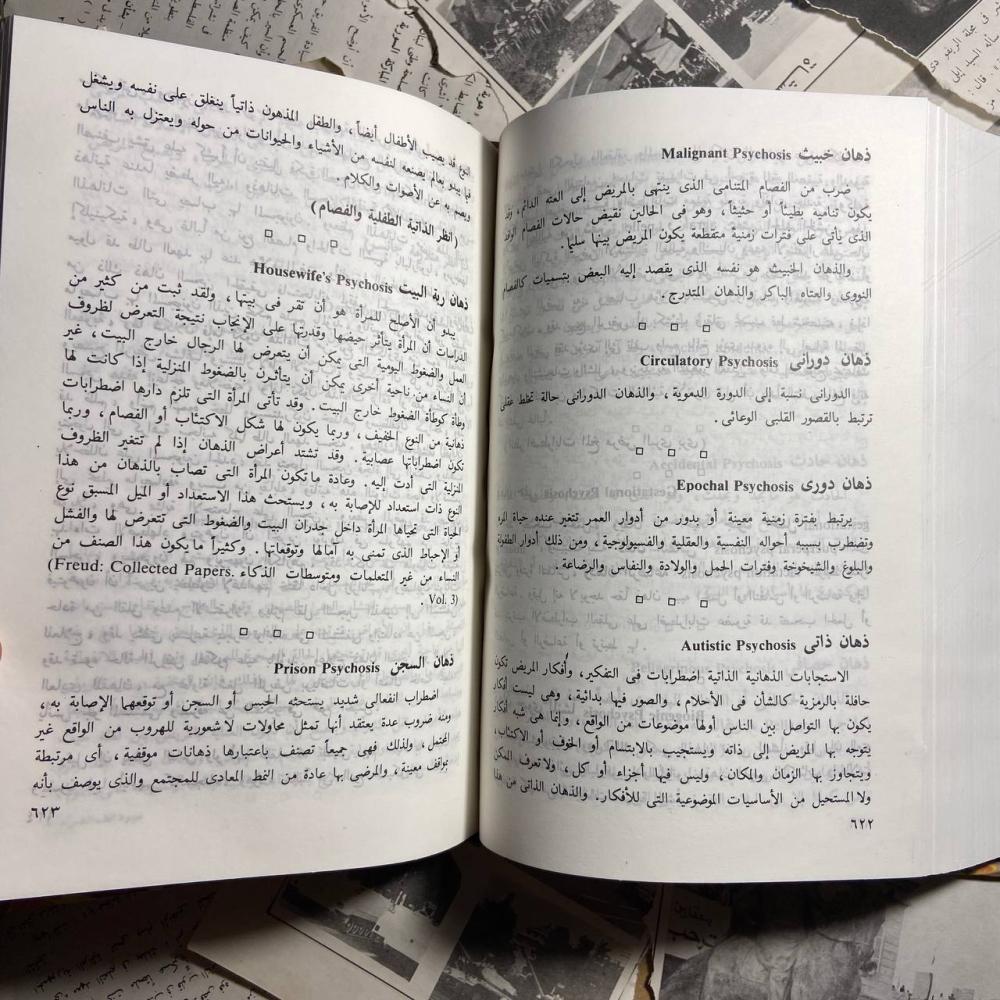 ذهان خبيث Malignant Psychosis
ضرب من الفصام المتنامى الذى ينتهى بالمريض إلى العته الدائم، وقد
يكون تناميه بطيئاً أو حثيثاً، وهو فى الحالين نقيض حالات الفصام
الذى يأتى على فترات زمنية متقطعة يكون المريض بينها سليما.
والذهان الخبيث هو نفسه الذى يقصد إليه البعض بتسميات كالفصام
النووى والعتاه الباكر والذهان المتدرج.
□ □ □
ذهان دورانى Circulatory Psychosis
الدورانى نسبة إلى الدورة الدموية، والذهان الدورانى حالة تخلط عقلى
ترتبط بالقصور القلبى الوعائى.
□ □ □
ذهان دورى Epochal Psychosis
يرتبط بفترة زمنية معينة أو بدور من أدوار العمر تتغير عنده حياة المرء
وتضطرب بسببه أحواله النفسية والعقلية والفسيولوجية، ومن ذلك أدوار الطفولة
والبلوغ والشيخوخة وفترات الحمل والولادة والنفاس والرضاعة.
□ □ □
ذهان ذاتى Autistic Psychosis
الاستجابات الذهانية الذاتية اضطرابات فى التفكير، وأفكار المريض تكون
حافلة بالرمزية كالشأن فى الأحلام، والصور فيها بدائية، وهى ليست أفكار
يكون بها التواصل بين الناس أو لها موضوعات من الواقع، وإنما هى شبه أفكار
يتوجه بها المريض إلى ذاته ويستجيب بالابتسام أو الخوف أو الاكتئاب،
ويتجاوز بها الزمان والمكان، وليس فيها أجزاء أو كل، ولا تعرف الممكن
ولا المستحيل من الأساسيات الموضوعية التى للأفكار. والذهان الذاتى من هذا
٦٢٢
النوع قد يصيب الأطفال أيضاً، والطفل المذهون ذاتياً ينغلق على نفسه ويشغل
فيما يبدو بعالم يصنعه لنفسه من الأشياء والحيوانات من حوله ويعتزل به الناس
ويصم به عن الأصوات والكلام.
(انظر الذاتية الطفلية والفصام)
□ □ □
ذهان ربة البيت Housewife's Psychosis
يبدو أن الأصلح للمرأة هو أن تقر فى بيتها، ولقد ثبت من كثير من
الدراسات أن المرأة يتأثر حيضها وقدرتها على الإنجاب نتيجة التعرض لظروف
العمل والضغوط اليومية التى يمكن أن يتعرض لها الرجال خارج البيت، غير
أن النساء من ناحية أخرى يمكن أن يتأثرن بالضغوط المنزلية إذا كانت لها
وطأة كوطأة الضغوط خارج البيت. وقد تأتى المرأة التى تلزم دارها اضطرابات
ذهانية من النوع الخفيف، وربما يكون لها شكل الاكتئاب أو الفصام، وربما
تكون اضطراباتها عصابية. وقد تشتد أعراض الذهان إذا لم تتغير الظروف
المنزلية التى أدت إليه. وعادة ما تكون المرأة التى تصاب بالذهان من هذا
النوع ذات استعداد للإصابة به، ويستحث هذا الاستعداد أو الميل المسبق نوع
الحياة التى تحياها المرأة داخل جدران البيت والضغوط التى تتعرض لها والفشل
أو الإحباط الذى تمنى به آمالها وتوقعاتها. وكثيراً ما يكون هذا الصنف من
النساء من غير المتعلمات ومتوسطات الذكاء (Freud: Collected Papers.
Vol. 3)
□ □ □
ذهان السجن Prison Psychosis
اضطراب انفعالى شديد يستحثه الحبس أو السجن أو توقعهما الإصابة به،
ومنه ضروب عدة يعتقد أنها تمثل محاولات لا شعورية للهروب من الواقع غير
المحتمل، ولذلك فهى جميعاً تصنف باعتبارها ذهانات موقفية، أى مرتبطة
بمواقف معينة، والمرضى بها عادة من النمط المعادى للمجتمع والذى يوصف بأنه
٦٢٣